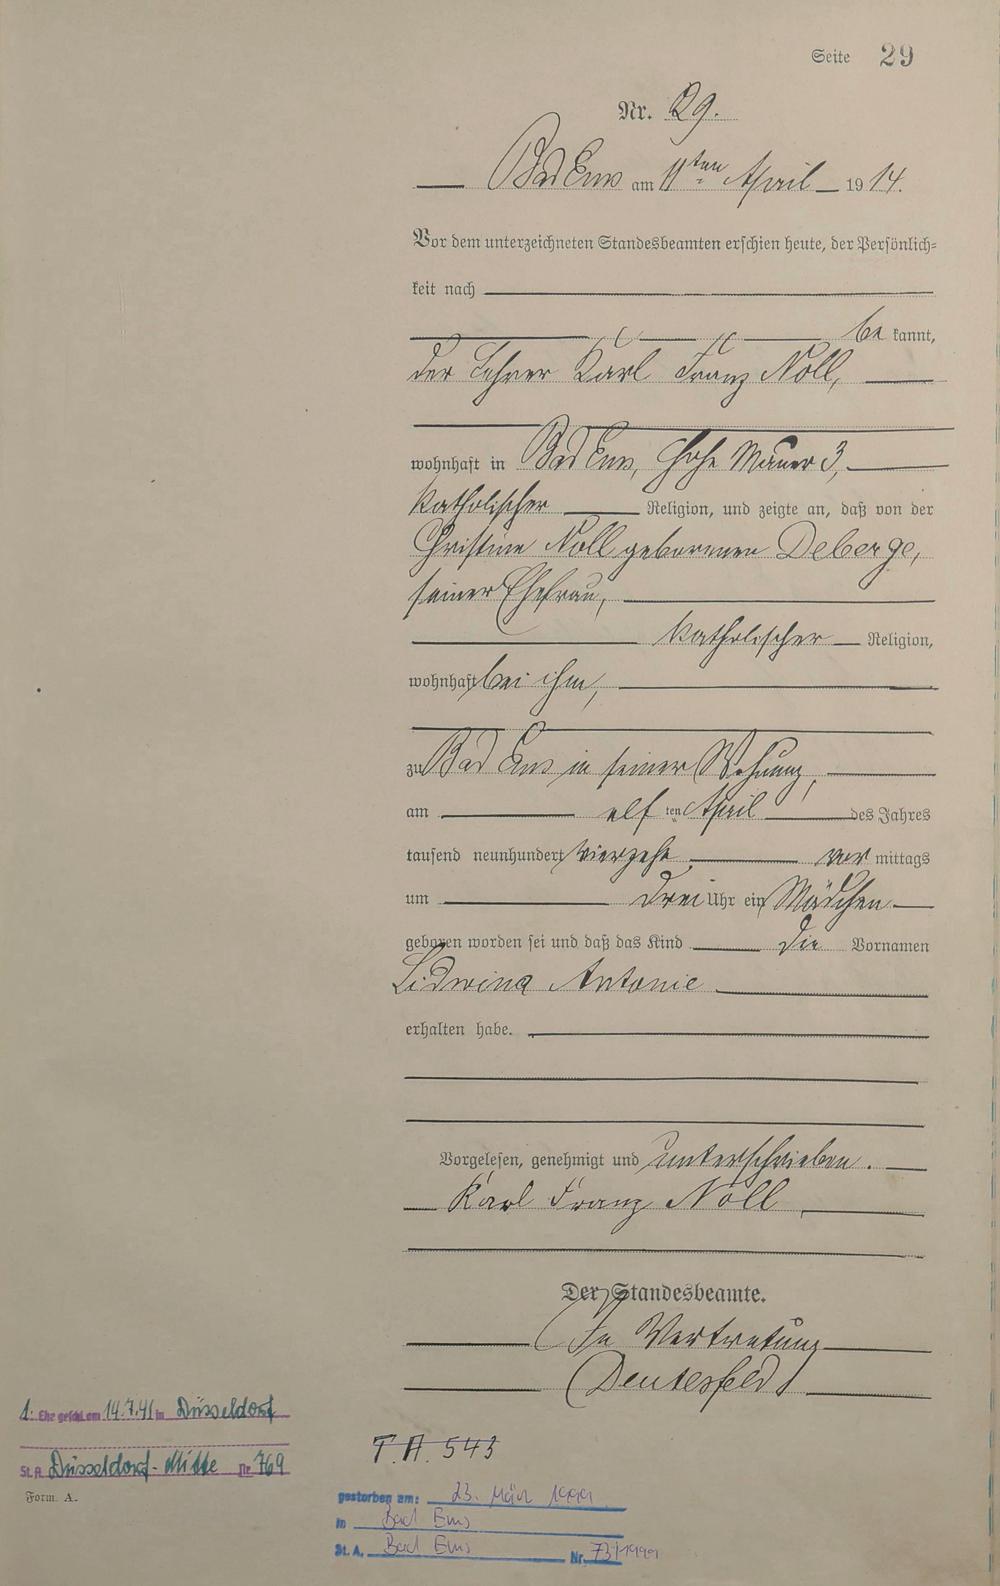 Seite 29
Nr. 29.
Bad Ems am 11ten April 1914.
Vor dem unterzeichneten Standesbeamten erschien heute, der Persönlich=
keit nach
be kannt,
der Lehrer Karl Franz Noll,
wohnhaft in Bad Ems, Hohe Mauer 3,
katholischer Religion, und zeigte an, daß von der
Christine Noll geborenen Deberge,
seiner Ehefrau,
katholischer Religion,
wohnhaft bei ihm,
zu Bad Ems in seiner Wohnung,
am elf ten April des Jahres
tausend neunhundert vierzehn vor mittags
um drei Uhr ein Mädchen
geboren worden sei und daß das Kind die Vornamen
Lidwina Antonie
erhalten habe.
Vorgelesen, genehmigt und unterschrieben.
Karl Franz Noll
Der Standesbeamte.
In Vertretung
1. Ehe geschl. am 14.7.41 in Düsseldorf
St. A. Düsseldorf-Mitte Nr. 769
Form. A.
T.A. 543
gestorben am: 23. März 1999
in Bad Ems
St. A. Bad Ems Nr. 73/1999